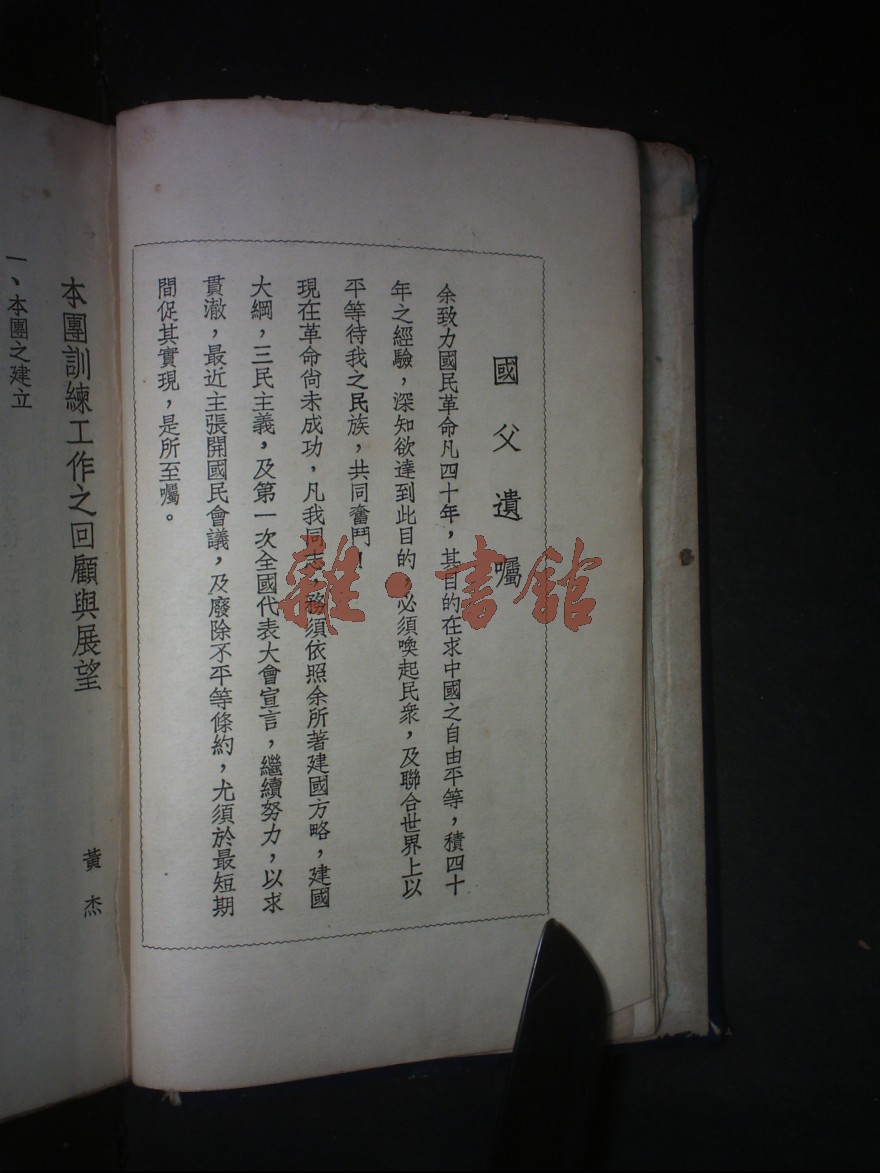 國父遺囑
余致力國民革命凡四十年，其目的在求中國之自由平等，積四十
年之經驗，深知欲達到此目的，必須喚起民衆，及聯合世界上以
平等待我之民族，共同奮鬥！
現在革命尙未成功，凡我同志，務須依照余所著建國方略，建國
大綱，三民主義，及第一次全國代表大會宣言，繼續努力，以求
貫澈，最近主張開國民會議，及廢除不平等條約，尤須於最短期
間促其實現，是所至囑。
本團訓練工作之回顧與展望
黃杰
一、本團之建立
雜·書館